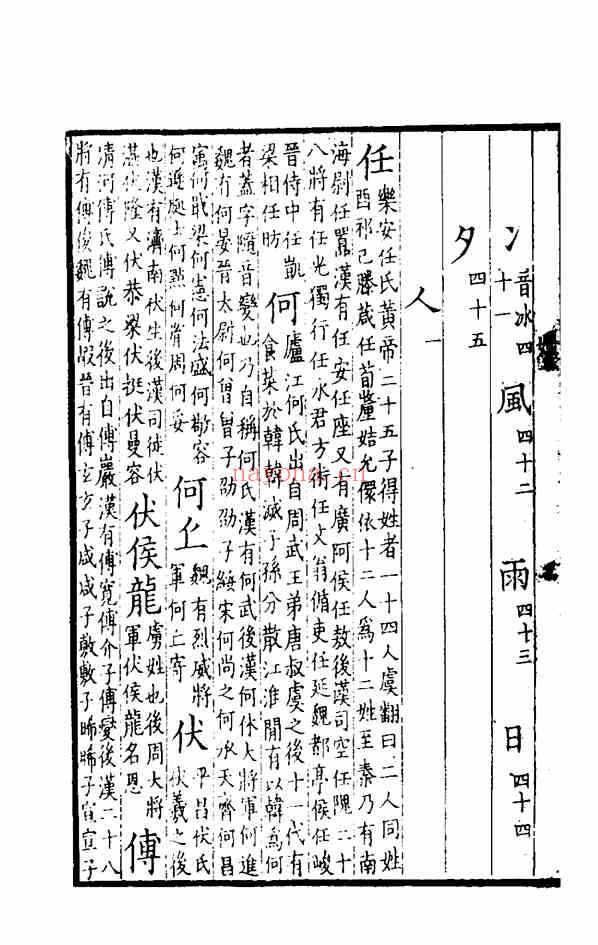 冫音冰四十一 風四十二 雨四十三 日四十四
夕四十五
人一
任樂安任氏黃帝二十五子得姓者一十四人虞翻曰二人同姓
酉祁己滕葴任荀釐姞允儇依十二人爲十二姓至秦乃有南
海尉任嚻漢有任安任座又有廣阿侯任敖後漢司空任隗二十
八將有任光獨行任永君方術任文翁循吏任延魏都亭侯任峻
晉侍中任凱
梁相任昉
何廬江何氏出自周武王弟唐叔虞之後十一代有
食菜於韓韓滅子孫分散江淮閒有以韓爲何
者蓋字隨音變也乃自稱何氏漢有何武後漢何休大將軍何進
魏有何晏晉太尉何曾曾子劭劭子綏宋何尚之何承天齊何昌
寓何戢梁何憲何法盛何敬容
何遜處士何點何胥周何妥
何丘魏有烈威將
軍何丘寄
伏平昌伏氏
伏羲之後
也漢有濟南伏生後漢司徒伏
湛伏隆又伏恭梁伏挺伏曼容
伏侯龍虜姓也後周大將
軍伏侯龍名恩
傅
清河傅氏傅說之後出自傅巖漢有傅寬傅介子傅燮後漢二十八
將有傅俊魏有傅嘏晉有傅玄玄子咸咸子敷敷子晞晞子宣宣子
navona.cn